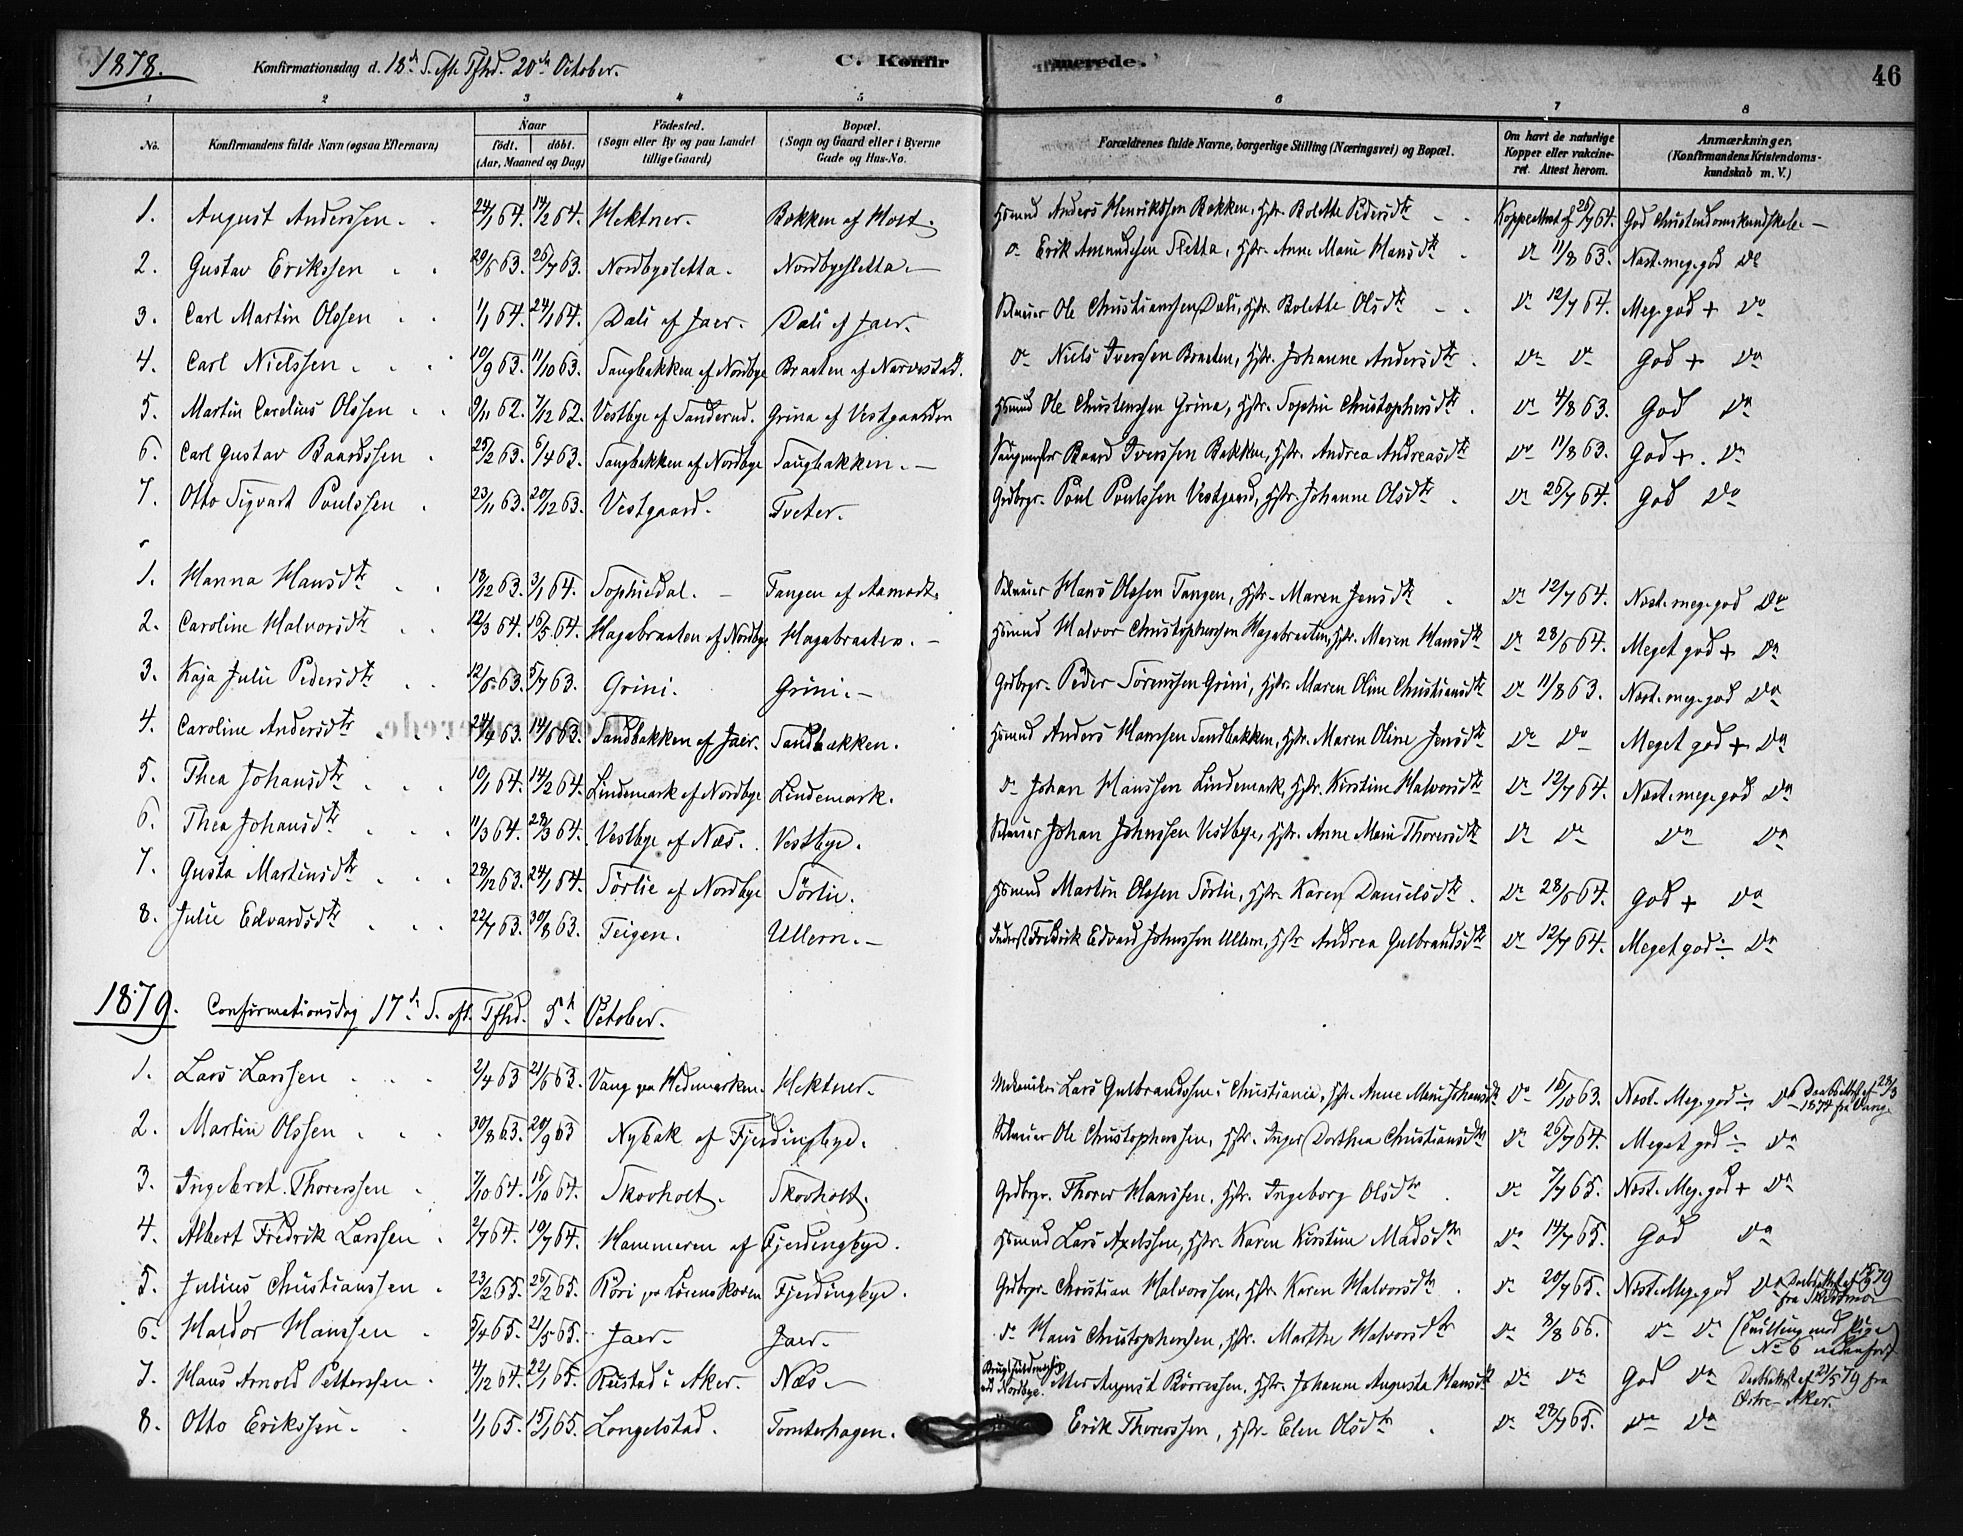 1878. Konfirmationsdag d. 18de S. eft. Tfhd. 20de October. C. Konfirmerede. 46
1 2 3 4 5 6 7 8
No. Konfirmandens fulde Navn (ogsaa Efternavn) Naar født. døbt. (Aar, Maaned og Dag) Födested. (Sogn eller By og paa Landet tillige Gaard) Bopæl. (Sogn og Gaard eller i Byerne Gade og Hus-No. Forældrenes fulde Navne, borgerlige Stilling (Næringsvei) og Bopæl. Om havt de naturlige Kopper eller vakcineret. Attest herom. Anmærkninger. (Konfirmandens Kristendomskundskab m. V.)
1. August Anderssen. 24/1 64. 14/2 64. Hektner. Bækken af Holt. Hsmnd Anders Henrikssen Bækken, Hstr. Bolette Pedersdtr Koppeattest af 26/7 64. God Christendomskundskab. —
2. Gustav Erikssen 29/6 63. 26/7 63. Nordbysletta. Nordbysletta. — do Erik Amundssen Sletta, Hstr. Anne Marie Hansdtr do 11/8 63. Næst. meg. god do
3. Carl Martin Olssen 1/1 64. 24/1 64. Dali af Jaer. Dali af Jaer. Selveier Ole Christianssen Dali, Hstr. Bolette Olsdtr do 12/7 64. Meg. god + do
4. Carl Nielssen 10/9 63. 11/10 63. Saugbakken af Nordbye Braaten af Narvestad. do Niels Iverssen Braaten, Hstr. Johanne Andersdtr do do God + do
5. Martin Carelius Olssen 9/11 62. 7/12 62. Vestbye af Sanderud. Grina af Vestgaarden Hsmnd Ole Christenssen Grina, Hstr. Sophie Christophersdtr do 4/8 63. God do
6. Carl Gustav Baardssen 25/2 63. 6/4 63. Saugbakken af Nordbye Saugbakken. — Baard Iverssen Bakken, Hstr. Andrea Andreasdtr do 11/8 63. God +. do
7. Otto Sigvart Poulssen 23/11 63. 20/12 63. Vestgaard. Tveter. Grdbrgr. Poul Poulssen Vestgaard, Hstr. Johanne Olsdtr do 26/7 64. God do
1. Hanna Hansdtr 18/12 63. 3/1 64. Sophiedal. — Tangen af Aamodt. Selveier Hans Olssen Tangen, Hstr. Maren Jensdtr do 12/7 64. Næst. meg. god do
2. Caroline Halvorsdtr 12/3 64. 16/5 64. Hagabraaten af Nordbye Hagabraaten. — Hsmnd Halvor Christopherssen Hagabraaten, Hstr. Maren Hansdtr do 28/6 64. Meget god + do
3. Kaja Julie Pedersdtr 12/6 63. 5/7 63. Grini. Grini. — Grdbrgr. Peder Sörenssen Grini, Hstr. Maren Oline Christiansdtr do 11/8 63. Næst. meg. god do
4. Caroline Andersdtr 24/4 63. 14/6 63. Sandbakken af Jaer. Sandbækken. Hsmnd Anders Hanssen Sandbakken, Hstr. Maren Oline Jensdtr do do Meget god + do
5. Thea Johansdtr 10/1 64. 14/2 64. Lindemark af Nordbye Lindemark. do Johan Hanssen Lindemark, Hstr. Kirstine Halvorsdtr do 12/7 64. Næst. meg. god do
6. Thea Johansdtr 11/3 64. 28/3 64. Vestbye af Næs. Vestbye. Selveier Johan Johnssen Vestbye, Hstr. Anne Marie Thorersdtr do do do do
7. Gusta Martinsdtr 28/12 63. 24/1 64. Sörlie af Nordbye Sörlie. Hsmnd Martin Olssen Sörlie, Hstr. Karen Danielsdtr do 28/6 64. God + do
8. Julie Edvardsdtr 22/7 63. 30/8 63. Teigen. Ullern. — Inderst Fredrik Edvard Johnssen Ullern, Hstr Andrea Gulbrandsdtr do 12/7 64. Meget god ÷ do
1879. Confirmationsdag 17de S. eft. Tfhd. 5te October.
1. Lars Larssen 2/4 63 21/6 63. Vang paa Hedemarken. Hektner. Mekaniker Lars Gulbrandssen i Christiania, Hstr. Anne Marie Johansdtr do 16/10 63. Næst. Meg. god ÷ do Daabsattest af 28/3 1874 fra Vang.
2. Martin Olssen 30/8 63. 20/9 63 Nybak af Fjerdingbye. Selveier Ole Christopherssen, Hstr. Inger Dorthea Christiansdtr do 26/7 64. Meget god ÷ do
3. Ingebret Thorerssen 7/10 64. 15/10 64. Skovholt. Skovholt. Grdbrgr. Thorer Hanssen, Hstr. Ingeborg Olsdtr do 7/7 65. Næst. Meg. god + do
4. Albert Fredrik Larssen 2/7 64. 10/7 64. Hammeren af Fjerdingbye. Hsmnd Lars Axelssen, Hstr. Karen Kirstine Madsdtr do 14/7 65. God do
5. Julius Christianssen 23/2 65. 26/2 65. Röri paa Lörenskoven Fjerdingbye. Grdbrgr. Christian Halvorssen, Hstr. Karen Halvorsdtr do 20/7 65. Næst. Meg. god do
6. Haldor Hanssen 5/4 65. 21/5 65. Jaer. Jaer. do Hans Christopherssen, Hstr. Marthe Halvorsdtr do 8/8 66. do do (Tvilling med Pige No 6 nedenfor)
7. Hans Arnold Petterssen 4/12 64. 22/1 65. Rustad i Aker. Næs — ved Nordbye. August Börressen, Hstr. Johanne Augusta Hansdtr do do God do Daabsattest af 21/5 79 fra Østre-Aker.
8. Otto Erikssen. 1/1 65. 15/1 65. Longelstad. Tomterhagen. Erik Thorerssen, Hstr. Elen Olsdtr do 28/7 65. do do